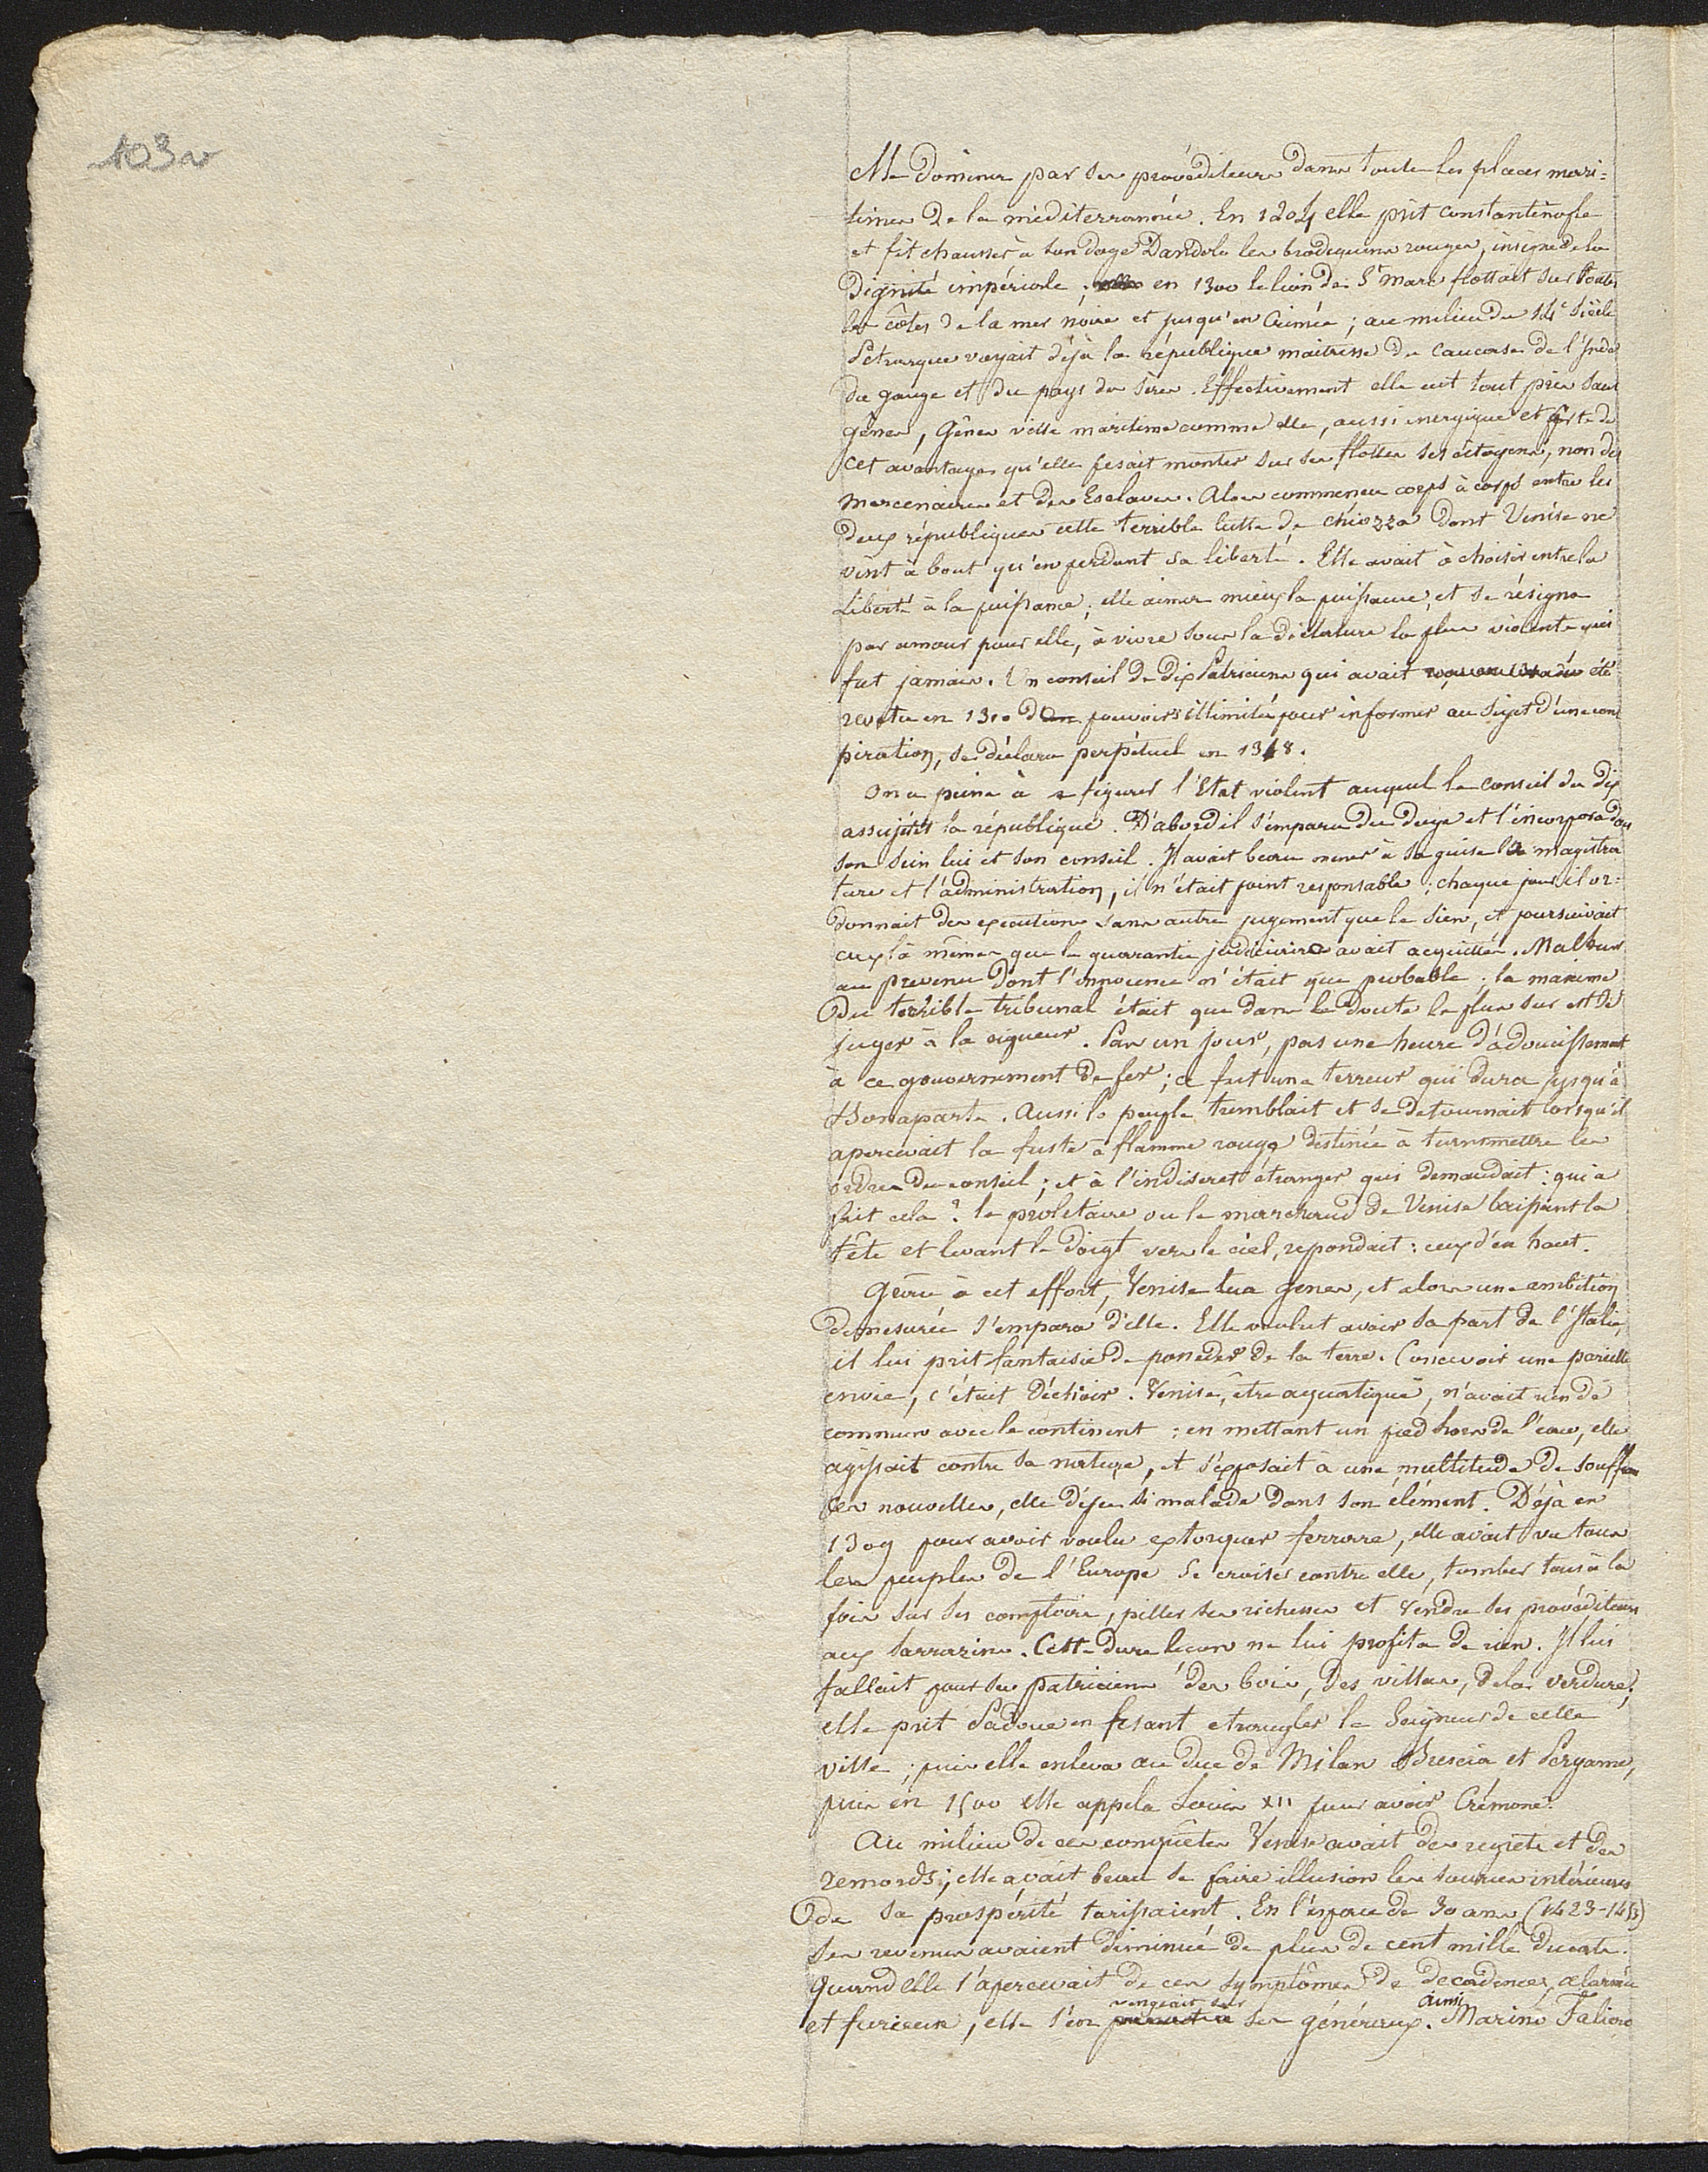 103a
Elle domina par ses provéditeurs dans toutes les places mari=
times de la méditerrannée. En 1204 elle prit constantinople
et fit chausser à son doge Dandolo les brodequins rouges, insigne de la
Dignité impériale ; en 1300 le lion de St marc flottait sur toutes
les côtes de la mer noire et jusqu'en Crimée ; au milieu du 14e siècle
Petrarque voyait déjà la république maitresse du Caucase de l'Inde
du gange et du pays des Seres. Effectivement elle eut tout pris sans
gênes, Gênes ville maritime comme elle, aussi energique et forte de
cet avantage qu'elle fesait monter sur ses flottes ses citoyens, non des
mercenaires et des Esclaves. Alors commença corps à corps entre les
deux républiques cette terrible lutte de chiozza dont Venise ne
vint à bout qu'en perdant sa liberté. Elle avait à choisir entre la
Liberté à la puissance ; elle aima mieux la puissance, et se résigna
par amour pour elle, à vivre sous la dictature la plus violente qui
fut jamais. Un conseil de dix Patriciens qui avait été
revetu en 1310 de pouvoirs illimités pour informer au sujet d'une cons
piration, se déclara perpétuel en 1318.
On a peine à se figurer l'Etat violent auquel le conseil des dix
assujétit la république. D'abord il s'empara du doge et l'incorpora dans
son sein lui et son conseil. Il avait beau mener à sa guise la magistra
ture et l'administration, il n'était point responsable ; chaque jour il or=
donnait des executions sans autre jugement que le sien, et poursuivait
ceux là mêmes que la quarantie judiciaire avait acquittés. Malheur
au prevenu dont l'innocence n'était que probable ; la maxime
Du terrible tribunal était que dans le doute le plus sur est de
juger à la rigueur. Pas un jour, pas une heure d'adoucissement
à ce gouvernement de fer ; ce fut une terreur qui dura jusqu'à
Bonaparte. Aussi le peuple tremblait et se detournait lorsqu'il
apercevait la fuste à flamme rouge destinée à transmettre les
ordres du conseil ; et à l'indiscret étranger qui demandait : qui a
fait cela ? le proletaire ou le marchand de Venise baissant la
tête et levant le doigt vers le ciel, repondait : ceux d'en haut.
Grâce à cet effort, Venise tua Genes, et alors une ambition
démesurée s'empara d'elle. Elle voulut avoir sa part de l'Italie,
il lui prit fantaisie de posseder de la terre. Concevoir une pareille
envie, c'était déchoir. Venise, être aquatique, n'avait rien de
commun avec le continent ; en mettant un pied hors de l'eau, elle
agissait contre sa nature, et s'exposait à une multitude de souffran
ces nouvelles, elle déjà si malade dans son élément. Déjà en
1309 pour avoir voulu extorquer ferrare, elle avait vu tous
les peuples de l'Europe se croiser contre elle, tomber tous à la
fois sur ses comptoirs, piller ses richesses et vendre ses provéditeurs
aux sarrazins. Cette dure lecon ne lui profita de rien. Il lui
fallait pour ses patriciens des bois, des villas, de la verdure ;
elle prit Padoue en fesant etrangler le Seigneur de cette
ville ; puis elle enleva au duc de Milan Brescia et Bergame,
puis en 1500 elle appela Louis XII pour avoir Crémone.
Au milieu de ces conquêtes Venise avait des regrets et des
remords ; elle avait beau se faire illusion les sources intérieures
de sa prospérité tarissaient. En l'espace de 30 ans (1423-1453)
ses revenus avaient diminué de plus de cent mille ducats.
Quand elle s'apercevait de ces symptômes de decadence, alarmée
et furieuse, elle s'en vengeait sur ses généraux. ainsi Marino Faliero